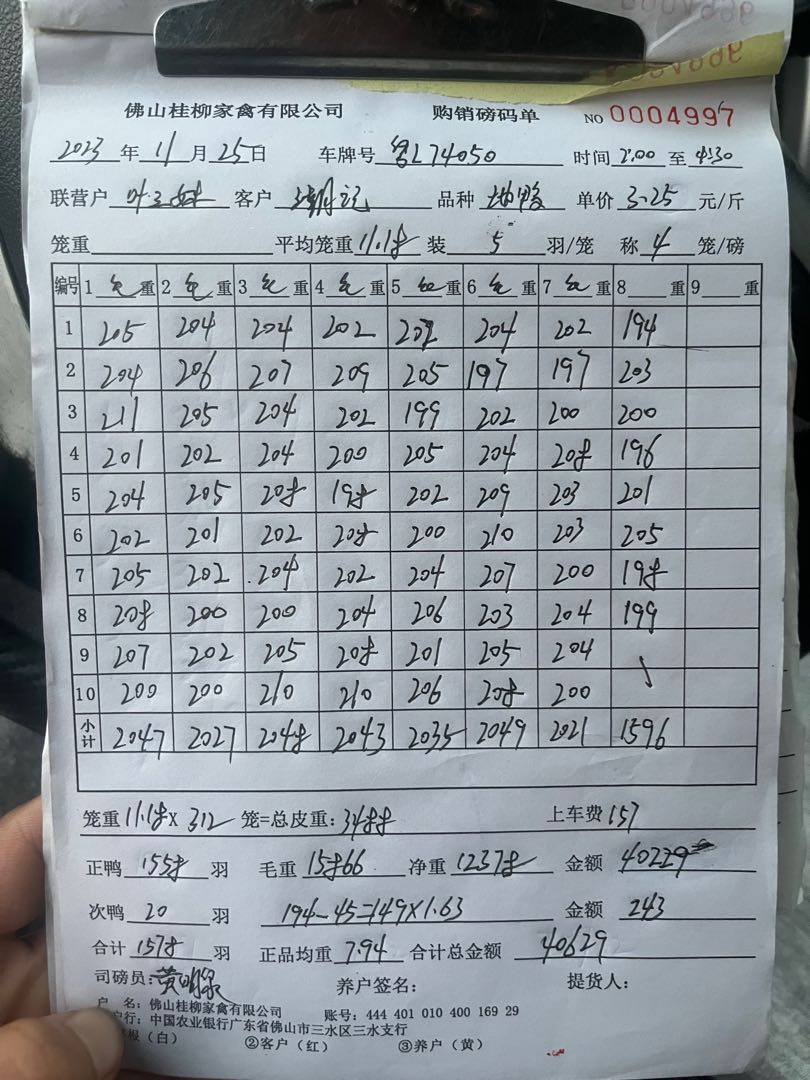 佛山桂柳家禽有限公司 购销磅码单 NO 0004997
2023 年 11 月 25 日 车牌号 粤L74050 时间 2:00 至 4:30
联营户 客户 潮记 品种 单价 3.25 元/斤
笼重 平均笼重 11.18 装 5 羽/笼 称 4 笼/磅
编号 1 毛 重 2 毛 重 3 毛 重 4 毛 重 5 毛 重 6 毛 重 7 毛 重 8 重 9 重
1 205 204 204 202 202 204 202 194
2 204 206 207 209 205 197 197 203
3 211 205 204 202 199 202 200 200
4 201 202 204 200 205 204 208 196
5 204 205 208 198 202 209 203 201
6 202 201 202 208 200 210 203 205
7 205 202 204 202 204 207 200 198
8 208 200 200 204 206 203 204 199
9 207 202 205 208 201 205 204
10 200 200 210 210 206 208 200
小计 2047 2027 2048 2043 2035 2049 2021 1596
笼重 11.18 X 312 笼=总皮重: 3488 上车费 157
正鸭 1558 羽 毛重 15866 净重 12378 金额 40229
次鸭 20 羽 194-45=149X1.63 金额 243
合计 1578 羽 正品均重 7.94 合计总金额 40629
司磅员: 养户签名: 提货人:
户 名: 佛山桂柳家禽有限公司 账号: 444 401 010 400 169 29
户行: 中国农业银行广东省佛山市三水区三水支行
根(白) ②客户(红) ③养户(黄)